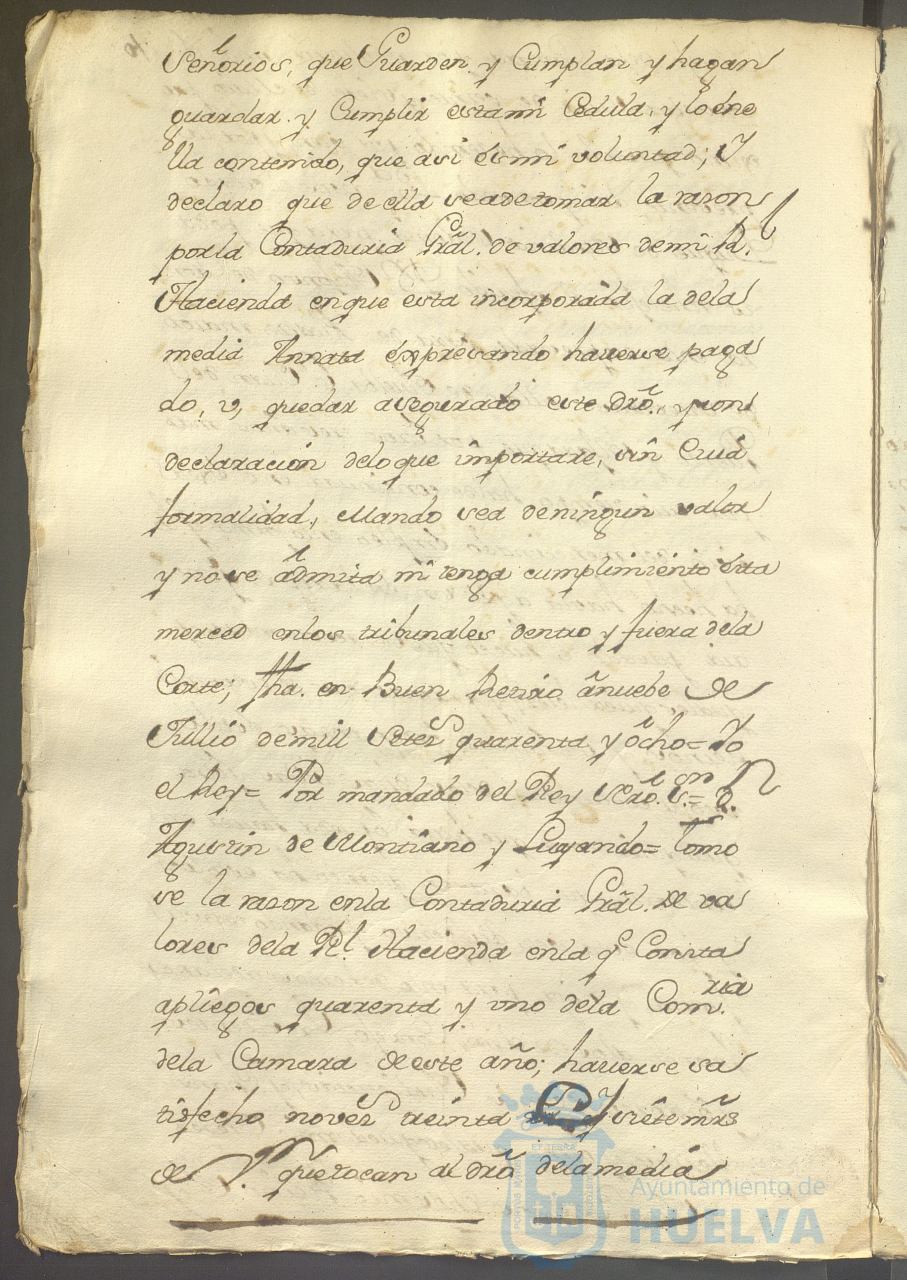 señorios, que Guarden y Cumplan y hagan
guardar y Cumplir esta mi Cedula, y lo ene
lla contenido, que asi és mi voluntad; Y
declaro que de ella se ade tomar la razon
por la Contaduria Grãl. de valores de mi Rl.
Hacienda en que esta incorporada la dela
media Annata éxpresando haverse paga
do, v, quedar asegurado este drô., y con
declaracion delo que importare, sin Cuia
formalidad, Mando sea de ningun valor
y no se ádmita ni tenga cumplimiento ésta
merced enlos tribunales dentro y fuera dela
Corte; fha. en Buen Retiro ã nuebe de
Jullio de mill Setes quarenta y ócho= Yo
el Rey= Por mandado del Rey
Agustin de Montiano y Luyando= tomo
se la razon enla Contaduria Grãl. de va
lores dela Rl. Hacienda enla q̃ Consta
apliegos quarenta y uno dela Comria.
dela Camara de este año; haverse sa
tisfecho noves treinta y siete mrs̃
de Vn. que tocan al drô dela media
Ayuntamiento de
HUELVA